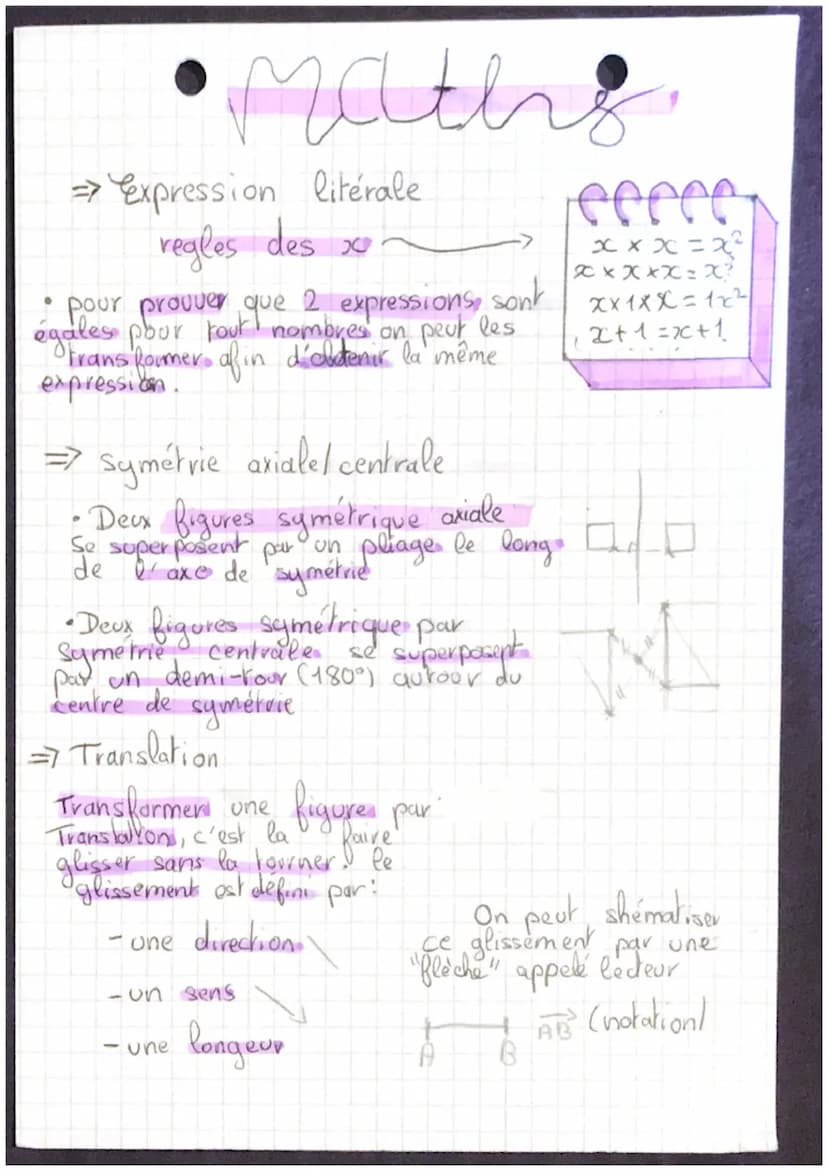 Maths
⇒ Expression litérale
regles des x
x × x = x²
x × x × x = x³
x×1×x = 1x²
x+1 = x+1
• pour prouver que 2 expressions sont
égales pour tout nombres on peut les
transformer afin d'obtenir la même
expression.
⇒ Symétrie axiale/centrale
• Deux figures symétrique axiale
se superposent par un pliage le long
de l'axe de symétrie
• Deux figures symétrique par
symétrie centrale se superposent
par un demi-tour (180°) autour du
centre de symétrie
⇒ Translation
Transformer une figure par
Translation, c'est la faire
glisser sans la tourner. le
glissement est défini par:
- une direction
- un sens
- une longeur
On peut shématiser
ce glissement par une
"flèche" appelé lecteur
A B
AB (notation)